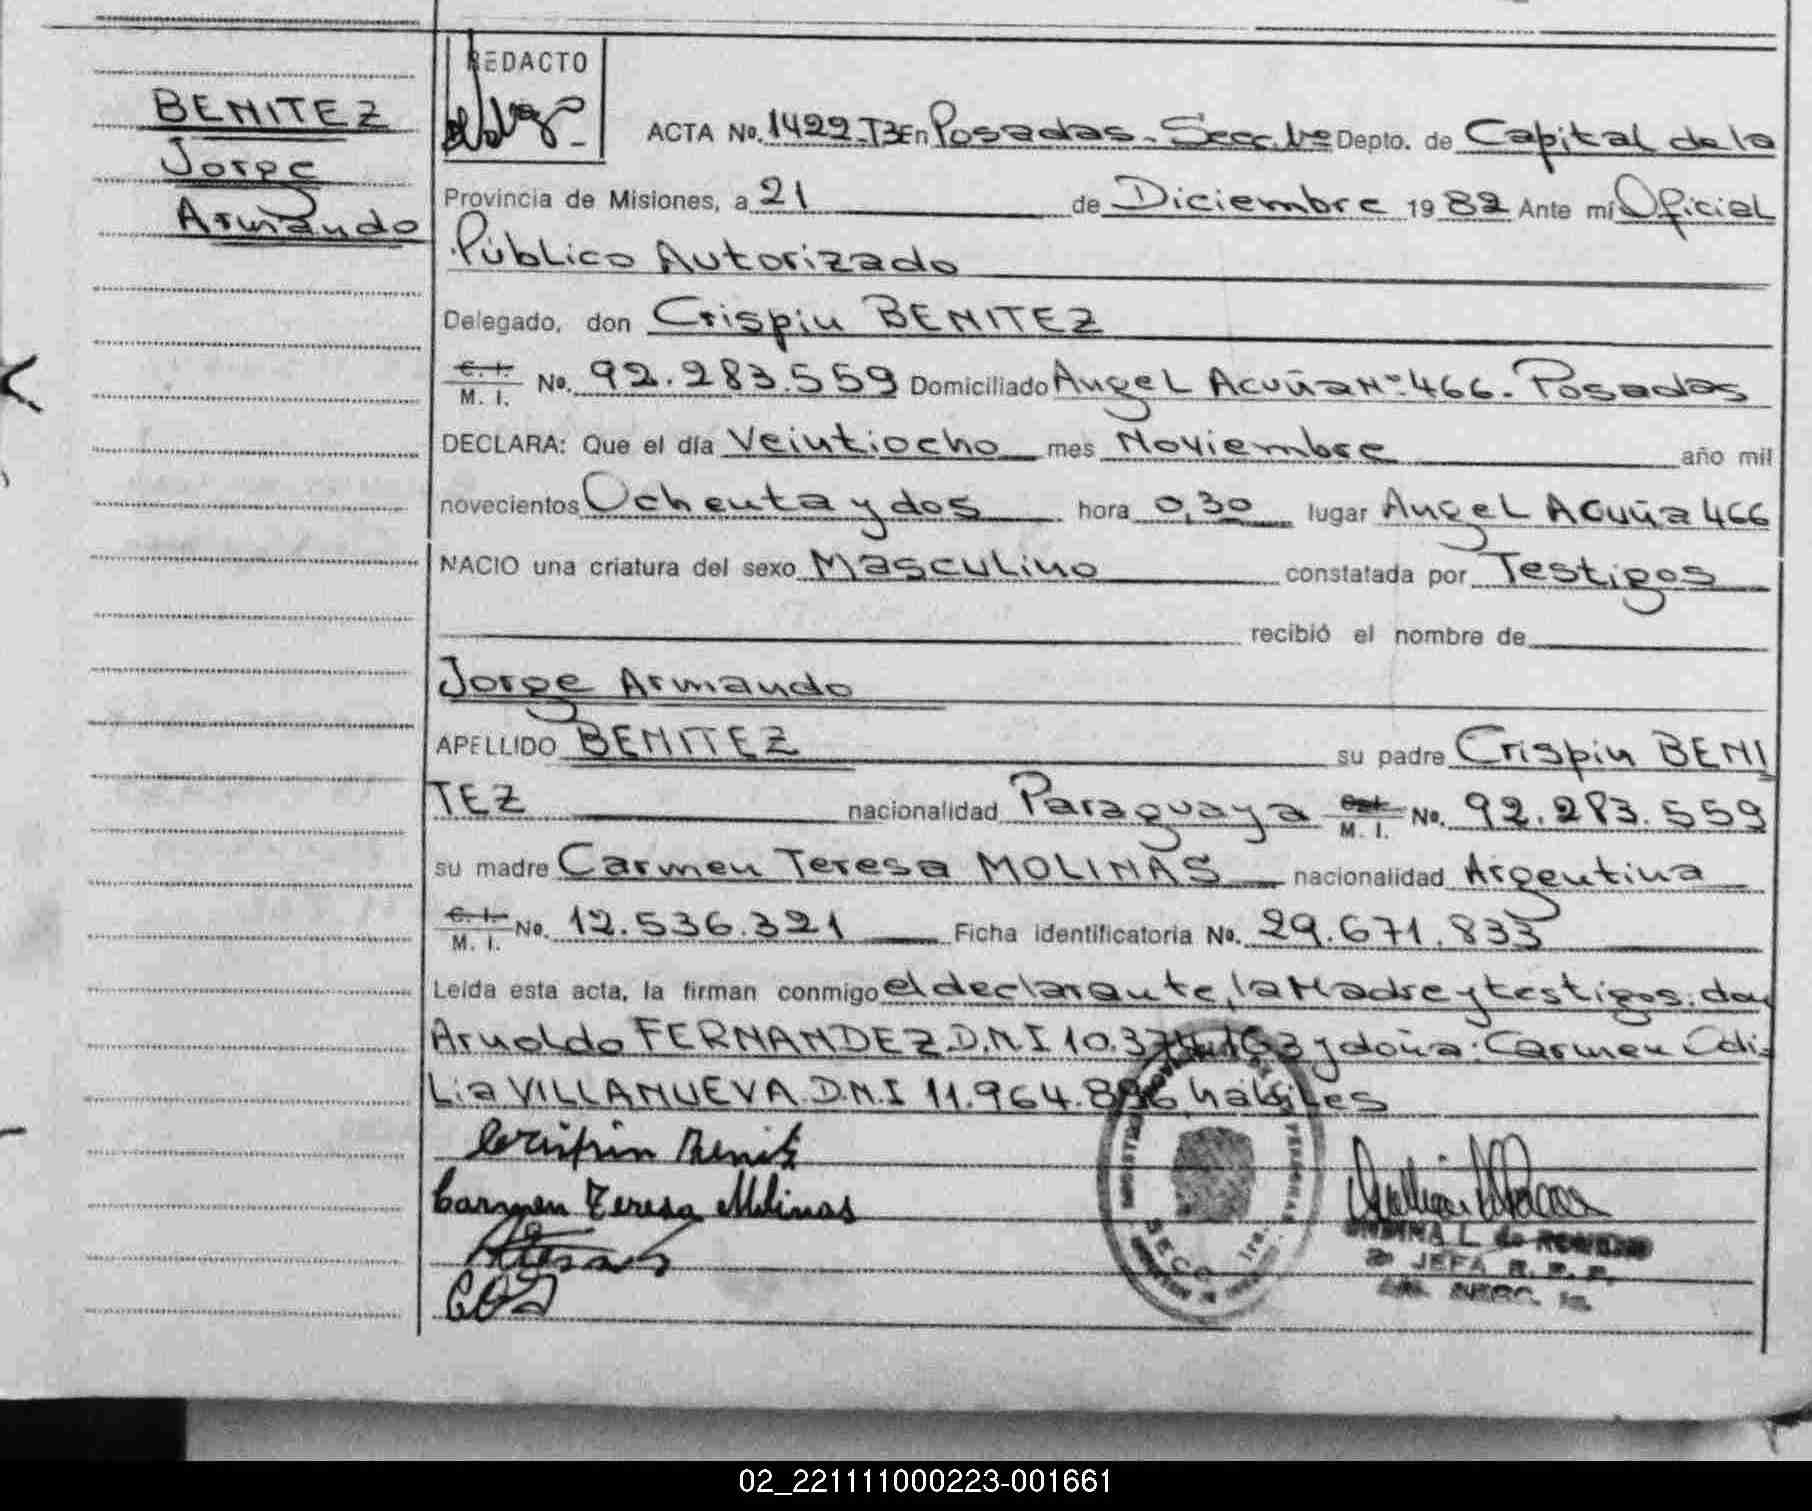 BENITEZ
Jorge
Armando
REDACTO
ACTA No. 1422-T3 En Posadas - Secc. 1ra Depto. de Capital de la
Provincia de Misiones, a 21 de Diciembre 1982 Ante mí Oficial
Público Autorizado
Delegado, don Crispin BENITEZ
C. I. M. I. No. 92.283.559 Domiciliado Angel Acuña Nº 466 - Posadas
DECLARA: Que el día Veintiocho mes Noviembre año mil
novecientos Ochenta y dos hora 0,30 lugar Angel Acuña 466
NACIO una criatura del sexo Masculino constatada por Testigos
recibió el nombre de
Jorge Armando
APELLIDO BENITEZ su padre Crispin BENI
TEZ nacionalidad Paraguaya M. I. No. 92.283.559
su madre Carmen Teresa MOLINAS nacionalidad Argentina
C. I. M. I. No. 12.536.321 Ficha identificatoria No. 29.671.833
Leída esta acta, la firman conmigo el declarante, la Madre y testigos: don
Arnoldo FERNANDEZ D.N.I 10. y doña: Carmen Odi-
lia VILLANUEVA D.N.I 11.964.896 hábiles
Crispin Benitez
Carmen Teresa Molinas
COV
SECC. 1ra.
L. de ROMERO
JEFA R. P. P.
02_221111000223-001661